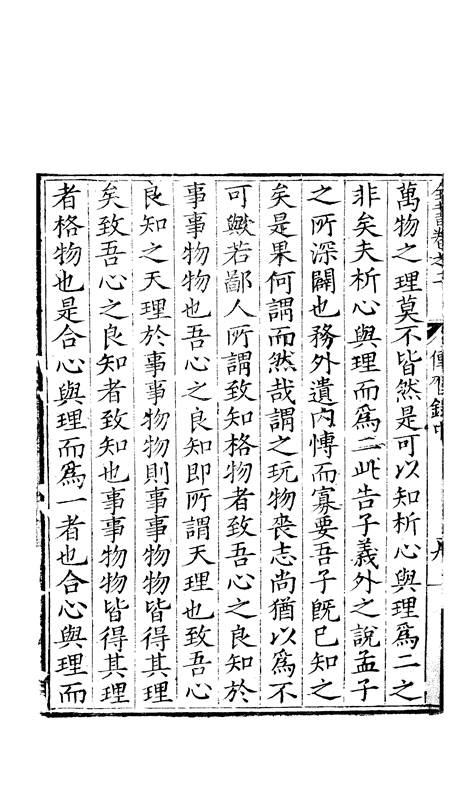 傳習錄中
萬物之理莫不皆然是可以知析心與理爲二之
非矣夫析心與理而爲二此告子義外之說孟子
之所深闢也務外遺內愽而寡要吾子旣已知之
矣是果何謂而然哉謂之玩物喪志尚猶以爲不
可歟若鄙人所謂致知格物者致吾心之良知於
事事物物也吾心之良知卽所謂天理也致吾心
良知之天理於事事物物則事事物物皆得其理
矣致吾心之良知者致知也事事物物皆得其理
者格物也是合心與理而爲一者也合心與理而